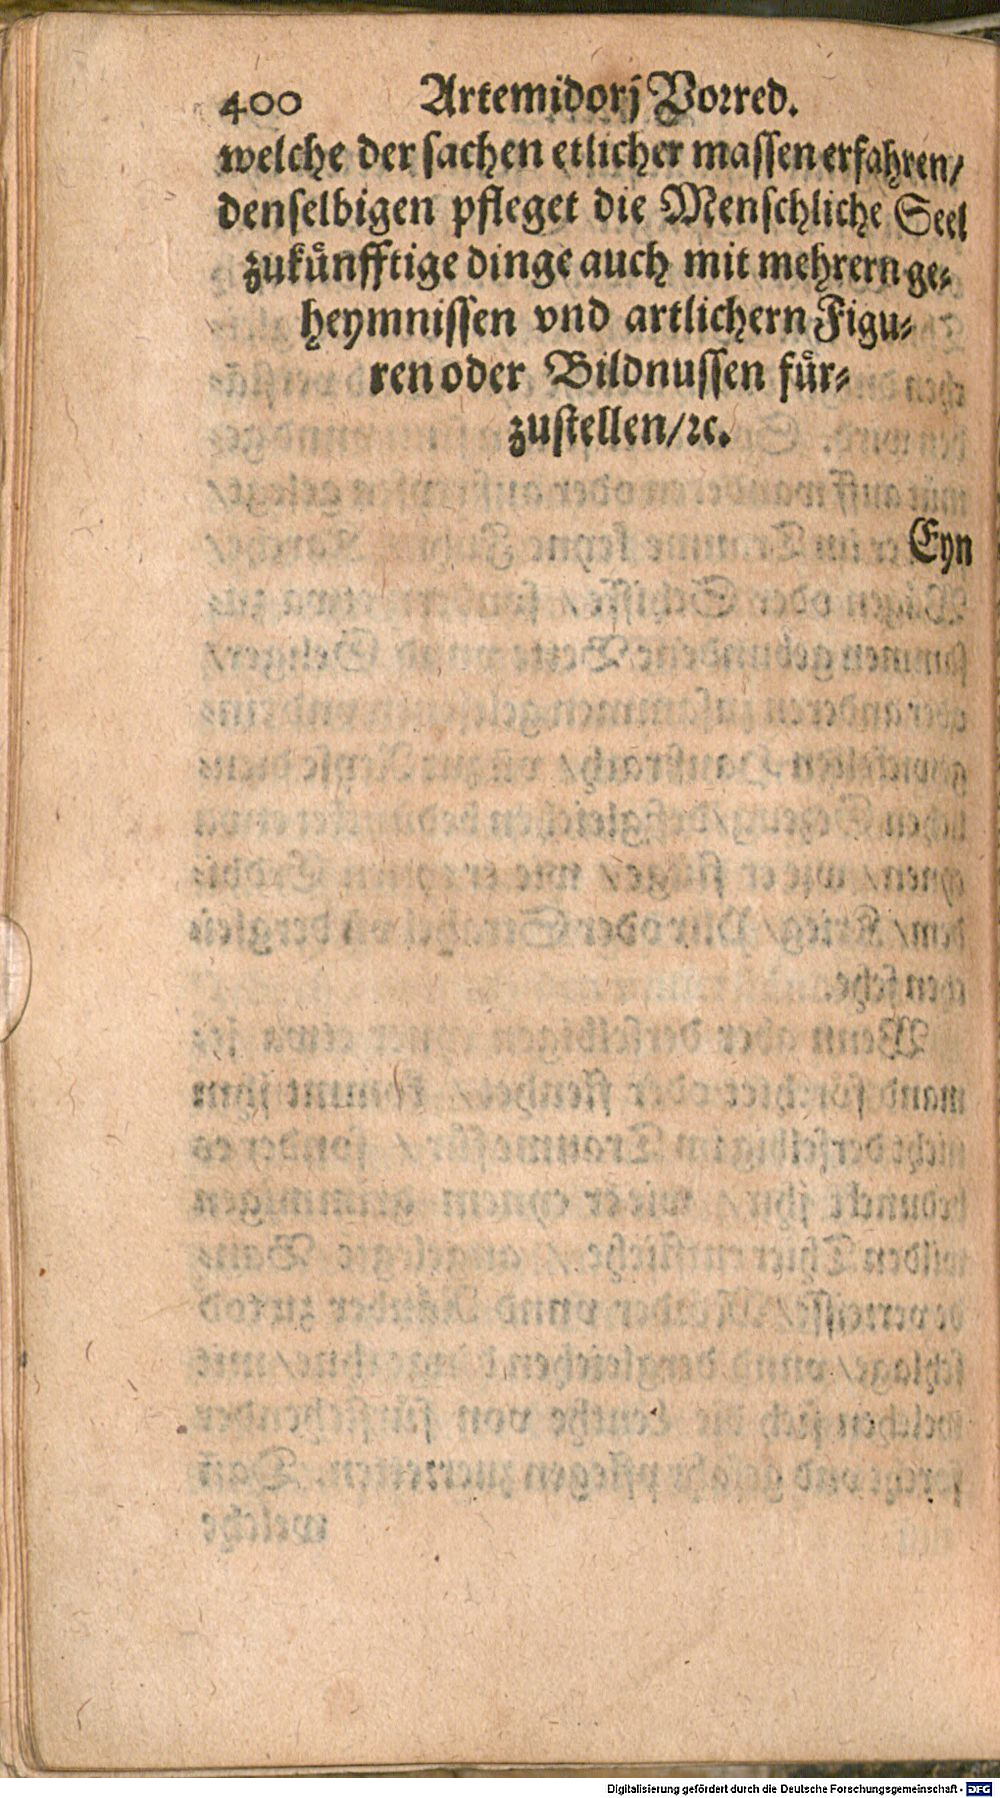 400 Artemidorj Vorred.
welche der sachen etlicher massen erfahren/
denselbigen pfleget die Menschliche Seel
zukůnfftige dinge auch mit mehrern ge⸗
heymnissen vnd artlichern Figu⸗
ren oder Bildnussen fůr⸗
zustellen/ꝛc.
Eyn
Digitalisierung gefördert durch die Deutsche Forschungsgemeinschaft - DFG